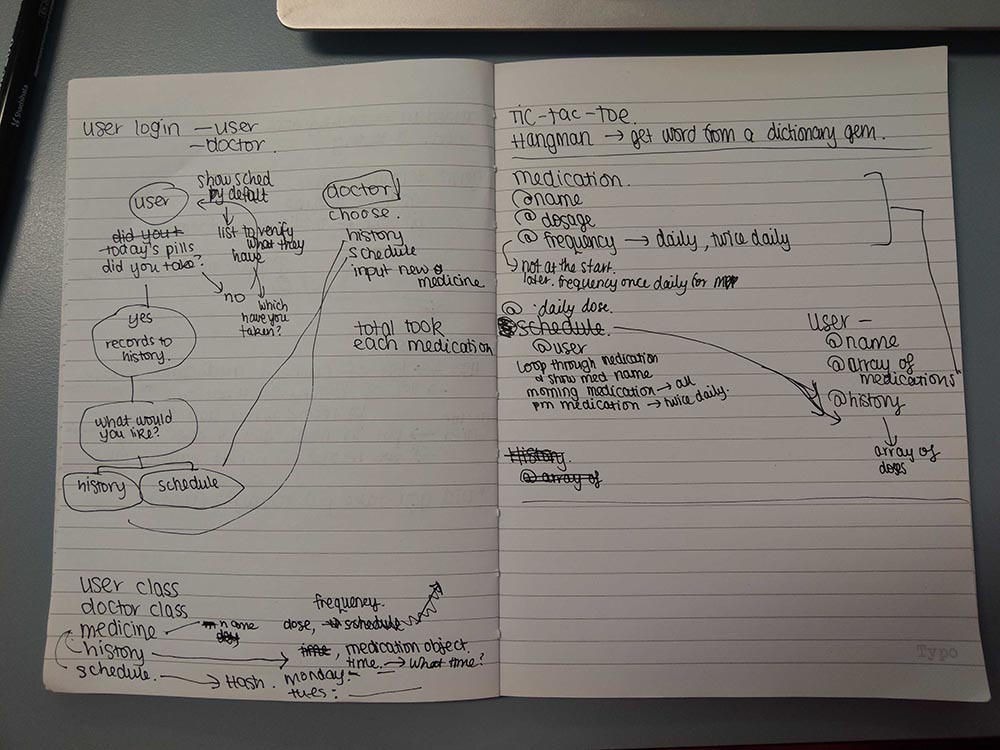 user login - user
- doctor.
user
show sched
by defalt
did you t
today's pills
did you take?
list to verify
what they
have
no
which
have you
taken?
yes
records to
history.
what would
you like?
history
schedule
doctor
choose.
history
schedule
input new
medicine
total took
each medication
user class
doctor class
medicine
history
schedule.
name
day
frequency.
dose, schedule
time, medication object.
time. → what time?
→ Hash. monday -
tues:
Tic-tac-toe.
Hangman → get word from a dictionary gem.
medication.
@name
@ dosage
@ frequency → daily, twice daily
→ not at the start.
later. frequency once daily for
@ daily dose.
schedule.
@user
loop through medication
& show med name
morning medication → all
pm medication → twice daily.
History.
@ array of
User -
@name
@array of
medications
@history
array of
doses
Typo
Shachihata